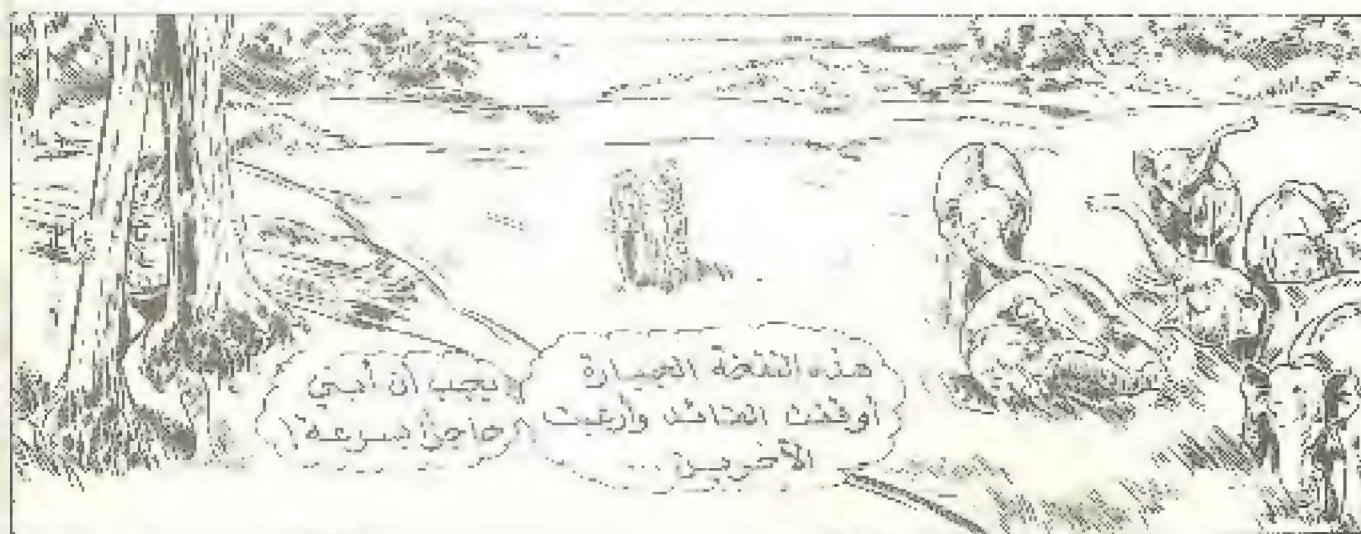 هذه النفخة الجبارة
أوقفت القائد وأرعبت
الآخرين..
يجب أن أبني
حاجزاً بسرعة!